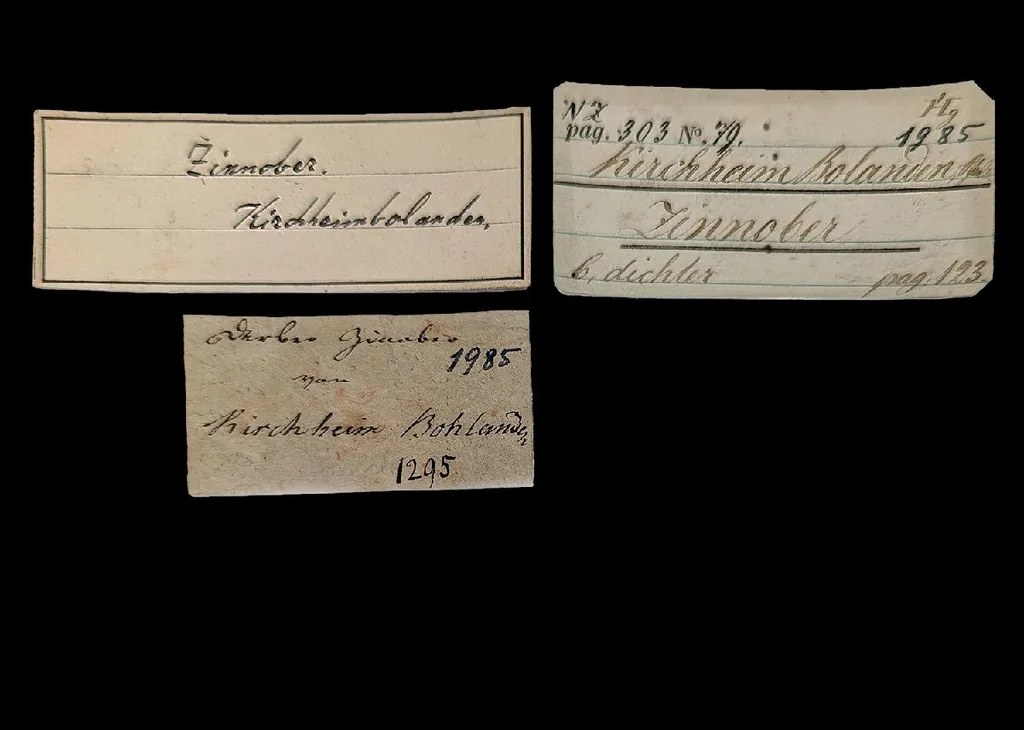 Zinnober.
Kirchheimbolanden,
NZ
pag. 303 No. 79.
1985
Kirchheim Bolanden
Zinnober
b, dichter pag. 123.
Derber Zinober
1985
von
Kirchheim Bohlanden
1295